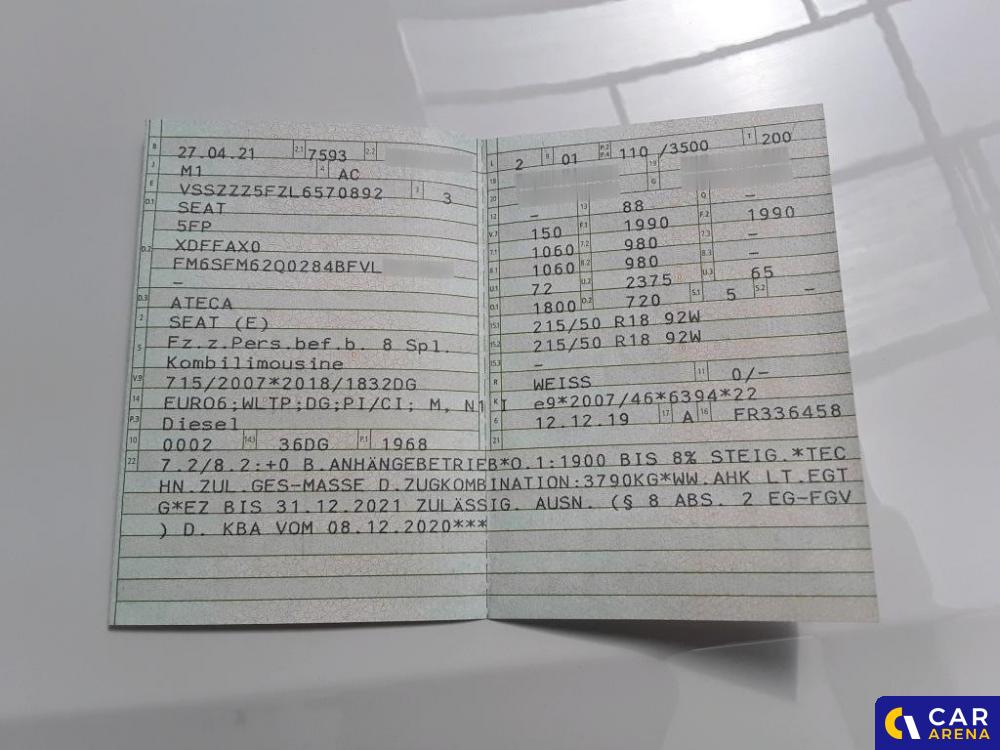 B 27.04.21 2.1 7593 2.2
J M1 4 AC
E VSSZZZ5FZL6570892 3 3
D.1 SEAT
5FP
D.2 XDFFAX0
FM6SFM62Q0284BFVL
–
D.3 ATECA
2 SEAT (E)
5 Fz.z.Pers.bef.b. 8 Spl.
Kombilimousine
V.9 715/2007*2018/1832DG
14 EURO6;WLTP;DG;PI/CI; M, N1 I
P.3 Diesel
10 0002 14.1 36DG P.1 1968
L 2 9 01 P.2 P.4 110 /3500 T 200
18 19 G
20
12 – 13 88 Q –
V.7 150 F.1 1990 F.2 1990
7.1 1060 7.2 980 7.3 –
8.1 1060 8.2 980 8.3 –
U.1 72 U.2 2375 U.3 65
O.1 1800 O.2 720 S.1 5 S.2 –
15.1 215/50 R18 92W
15.2 215/50 R18 92W
15.3 –
R WEISS 11 0/–
K e9*2007/46*6394*22
6 12.12.19 17 A 16 FR336458
21
22 7.2/8.2:+0 B.ANHÄNGEBETRIEB*O.1:1900 BIS 8% STEIG.*TEC
HN.ZUL.GES-MASSE D.ZUGKOMBINATION:3790KG*WW.AHK LT.EGT
G*EZ BIS 31.12.2021 ZULÄSSIG. AUSN. (§ 8 ABS. 2 EG-FGV
) D. KBA VOM 08.12.2020***
CAR
ARENA